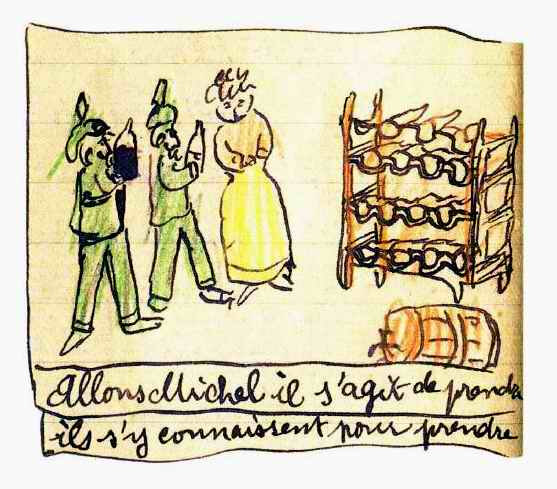 Allons Michel il s'agit de prendr
ils s'y connaissent pour prendre